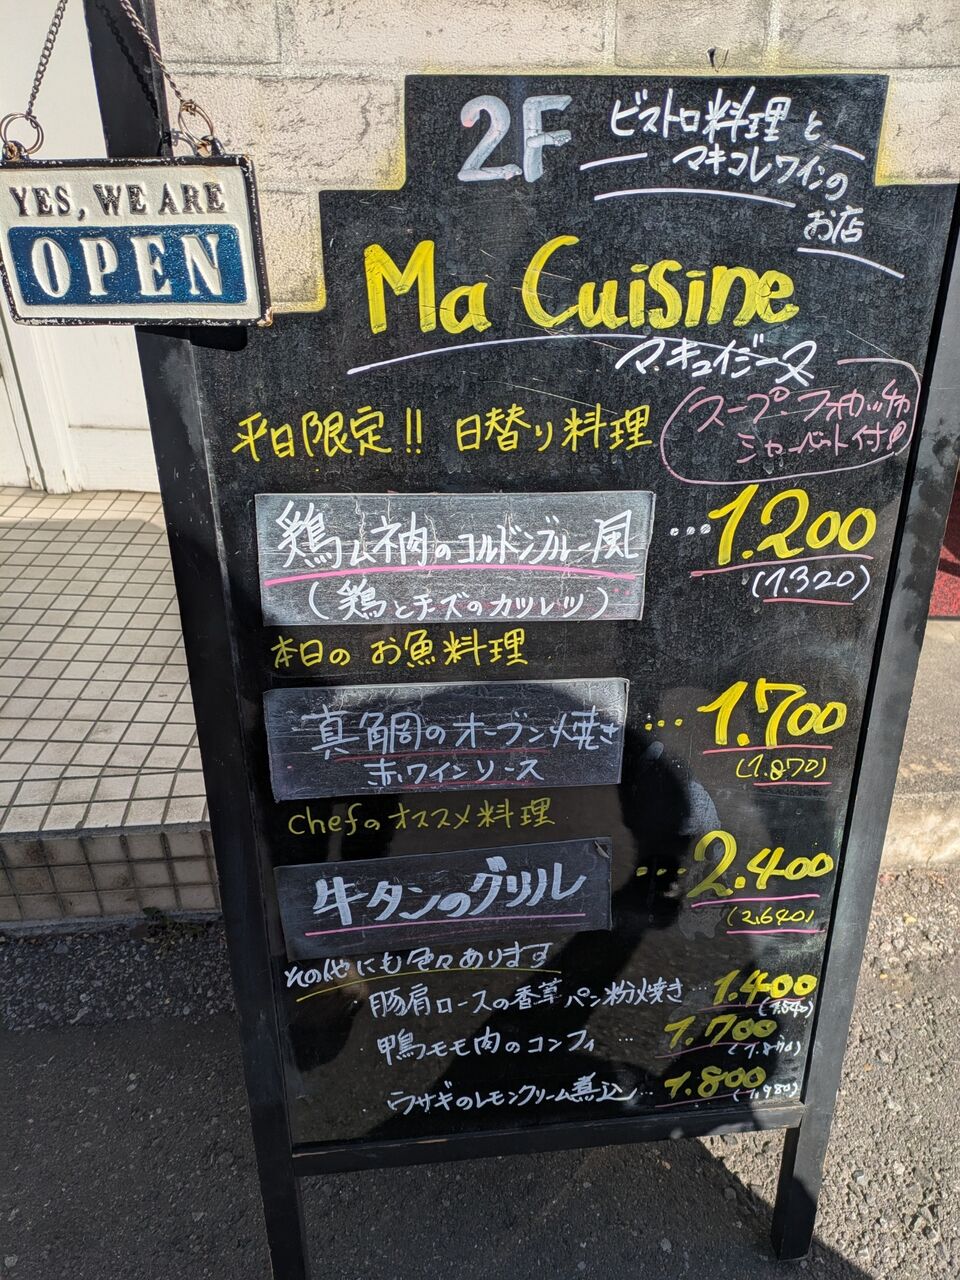 YES, WE ARE
OPEN
2F
ビストロ料理と
マキコレワインの
お店
Ma Cuisine
マ・キュイジーヌ
平日限定!! 日替り料理
スープ・フォカッチャ
シャーベット付!!
鶏ムネ肉のコルドンブルー風
(鶏とチーズのカツレツ)
…1.200
(1.320)
本日の お魚料理
真鯛のオーブン焼き
赤ワインソース
…1.700
(1.870)
chefのオススメ料理
牛タンのグリル
…2.400
(2.640)
その他にも色々あります
豚肩ロースの香草パン粉焼き…1.400
(1.540)
鴨モモ肉のコンフィ…1.700
(1.870)
ウサギのレモンクリーム煮込…1.800
(1.980)